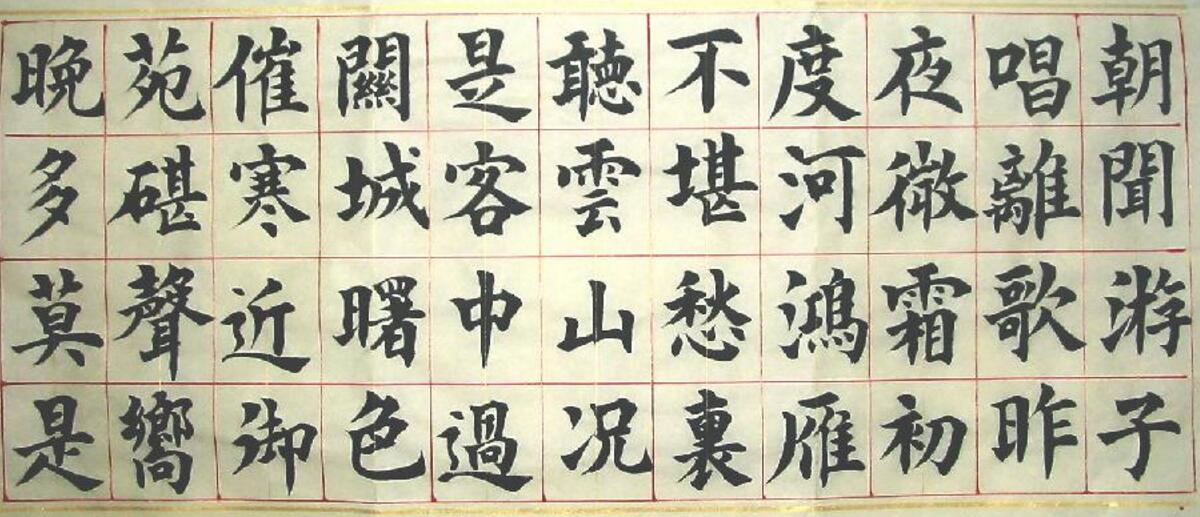 朝聞游子
唱離歌昨
夜微霜初
度河鴻雁
不堪愁裏
聽雲山况
是客中過
關城曙色
催寒近御
苑碪聲嚮
晚多莫是